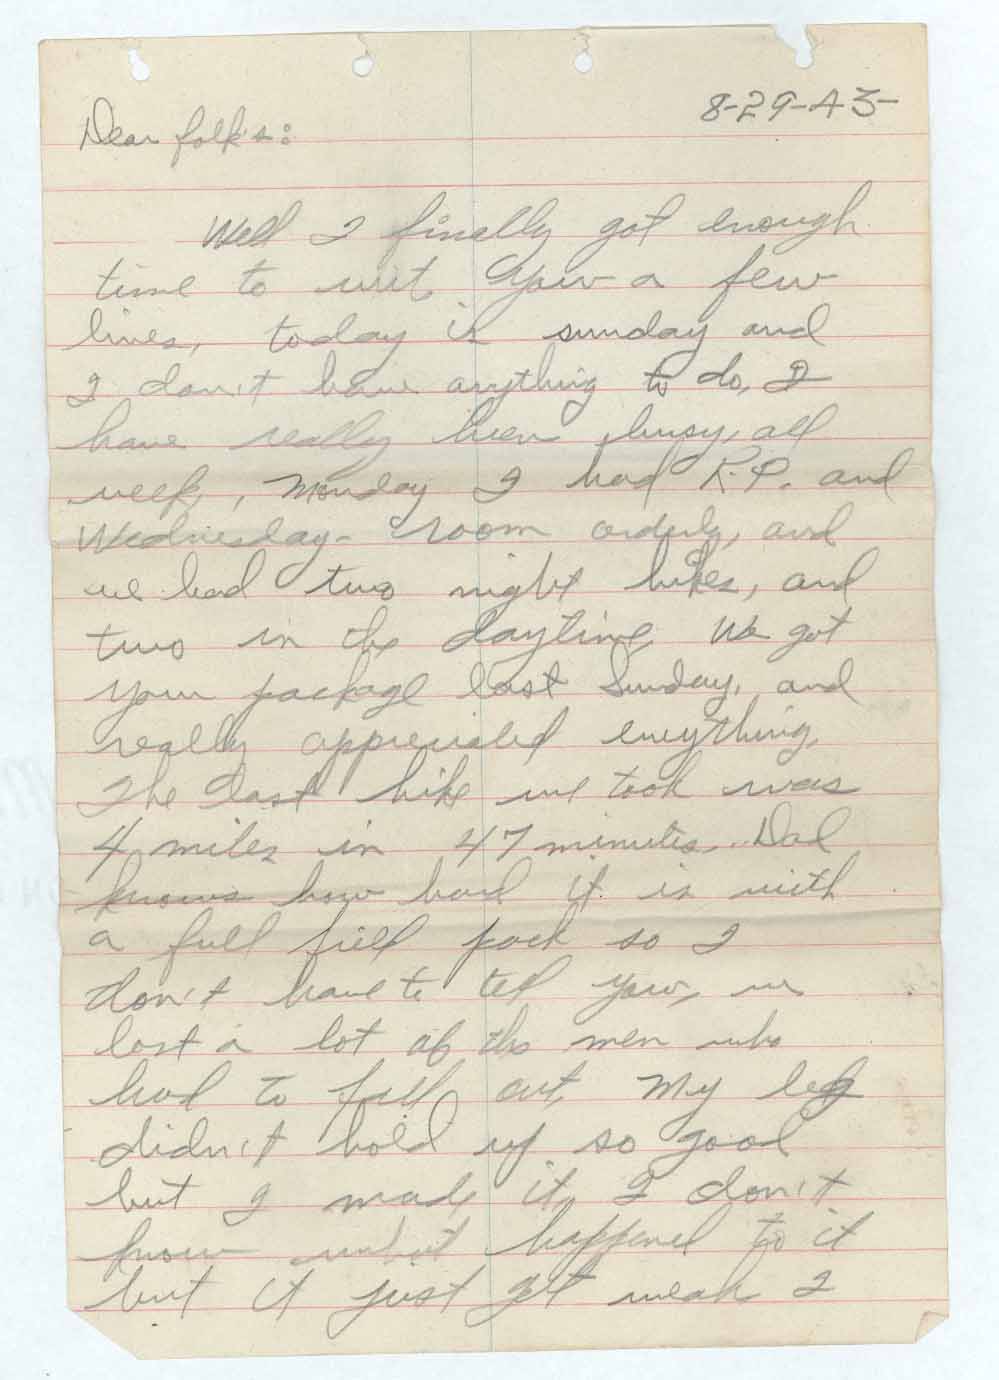 8-29-43-
Dear folk's:
Well I finally got enough
time to writ you a few
lines, today is sunday and
I don't have anything to do, I
have really been busy, all
week, Monday I had K.P. and
Wednesday- room orderly, and
we had two night hikes, and
two in the daytime, We got
your package last Sunday, and
really appreciated everything,
The last hike we took was
4 miles in 47 minutes, Dad
knows how hard it is with
a full field pack so I
don't have to tell you, we
lost a lot of the men who
had to fall out, My leg
didn't hold up so good
but I made it, I don't
know what happened to it
but it just got weak I